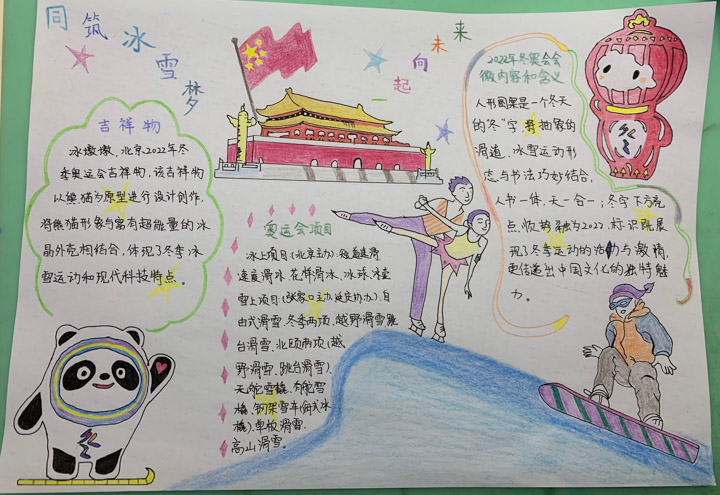 同筑冰雪梦
一起向未来
吉祥物
冰墩墩、北京2022年冬
季奥运会吉祥物，该吉祥物
以熊猫为原型进行设计创作，
将熊猫形象与富有超能量的冰
晶外壳相结合，体现了冬季冰
雪运动和现代科技特点。
奥运会项目
冰上项目（北京主办）短道速滑
速度滑冰、花样滑冰、冰球、冰壶
雪上项目（张家口主办，延庆协办）、自
由式滑雪、冬季两项、越野滑雪跳
台滑雪、北欧两项（越
野滑雪、跳台滑雪）、
无舵雪橇、有舵雪
橇、钢架雪车（俯式冰
橇）、单板滑雪、
高山滑雪。
2022年冬奥会会
徽内容和含义
人形图案是一个冬天
的"冬"字，将抽象的
滑道、冰雪运动形
态与书法巧妙结合，
人书一体，天一合一；冬字下方两
点，顺势融为2022，标识既展
现了冬季运动的活力与激情，
更传递出中国文化的独特魅
力。